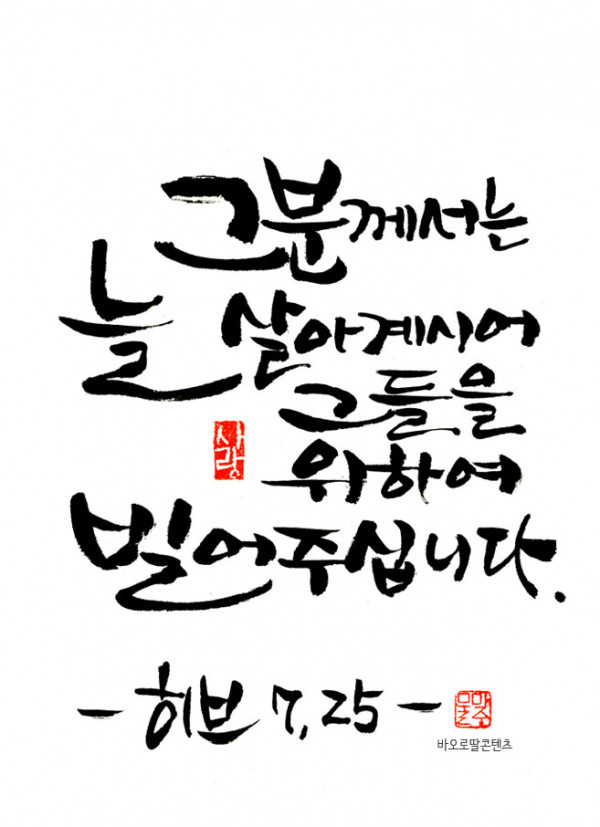 그분께서는
늘 살아계시어
그들을
위하여
사랑
빌어주십니다.
- 히브 7, 25 -
바오로딸콘텐츠